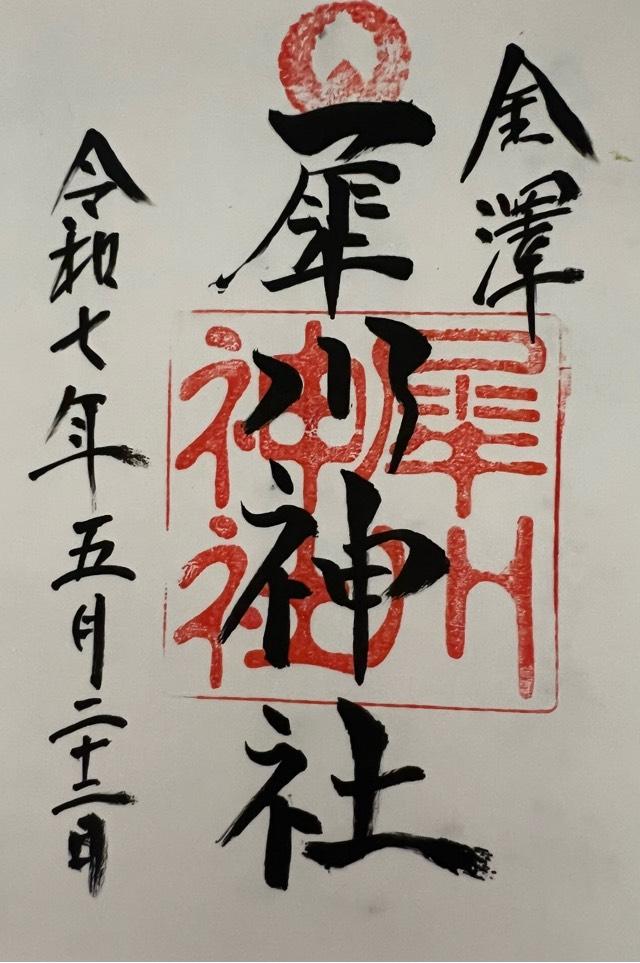 金澤
犀川神社
犀川
神社
令和七年五月二十二日